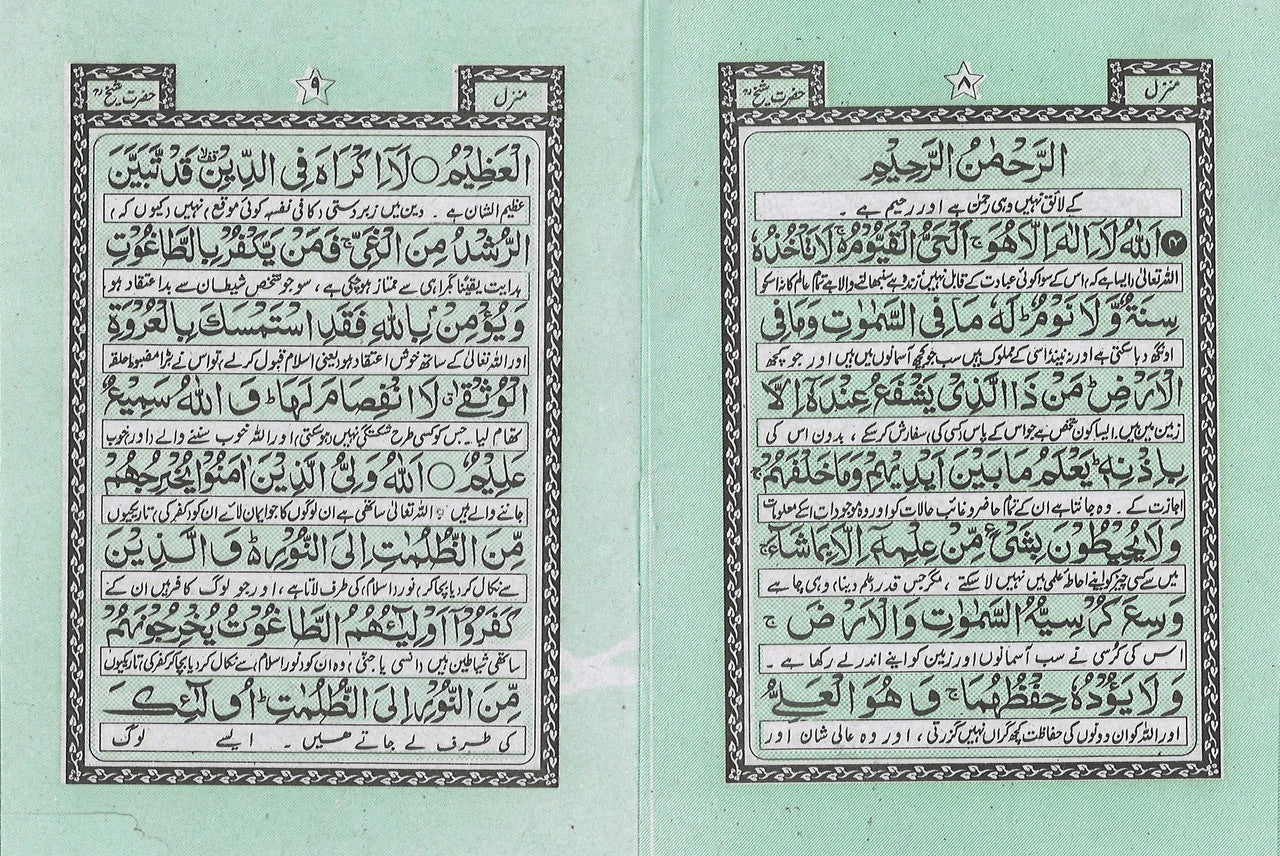 منزل
۸
حضرت شیخؒ
الرَّحْمٰنُ الرَّحِیْمُ
کے لائق نہیں وہی رحمٰن ہے اور رحیم ہے ۔
۱۷ اَللّٰهُ لَاۤ اِلٰهَ اِلَّا هُوَ ۚ اَلْحَیُّ الْقَیُّوْمُ ۚ لَا تَاْخُذُهٗ
اللہ تعالیٰ (ایسا ہے کہ) اس کے سوا کوئی عبادت کے قابل نہیں زندہ ہے سنبھالنے والا ہے تمام عالم کا نہ اسکو
سِنَةٌ وَّ لَا نَوْمٌ ؕ لَهٗ مَا فِی السَّمٰوٰتِ وَمَا فِی
اونگھ دبا سکتی ہے اور نہ نیند اسی کے مملوک ہیں سب جو کچھ آسمانوں میں ہیں اور جو کچھ
الْاَرْضِ ؕ مَنْ ذَا الَّذِیْ یَشْفَعُ عِنْدَهٗۤ اِلَّا
زمین میں ہیں ایسا کون شخص ہے جو اس کے پاس (کسی کی) سفارش کرسکے ، بدون اس کی
بِاِذْنِهٖ ؕ یَعْلَمُ مَا بَیْنَ اَیْدِیْهِمْ وَمَا خَلْفَهُمْ ۚ
اجازت کے ۔ وہ جانتا ہے ان کے تمام حاضر و غائب حالات کو اور وہ موجودات اسکے معلومات
وَلَا یُحِیْطُوْنَ بِشَیْءٍ مِّنْ عِلْمِهٖۤ اِلَّا بِمَا شَآءَ ۚ
میں سے کسی چیز کو اپنے احاطۂ علمی میں نہیں لا سکتے ، مگر جس قدر (علم دینا) وہی چاہے
وَسِعَ كُرْسِیُّهُ السَّمٰوٰتِ وَالْاَرْضَ ۚ
اس کی کرسی نے سب آسمانوں اور زمین کو اپنے اندر لے رکھا ہے ۔
وَ لَا یَـُٔوْدُهٗ حِفْظُهُمَا ۚ وَ هُوَ الْعَلِیُّ
اور اللہ کو ان دونوں کی حفاظت کچھ گراں نہیں گزرتی ، اور وہ عالی شان اور
منزل
۹
حضرت شیخؒ
الْعَظِیْمُ ○ لَاۤ اِكْرَاهَ فِی الدِّیْنِ قف قَدْ تَّبَیَّنَ
عظیم الشان ہے ۔ دین میں زبردستی (کا فی نفسہ کوئی موقع) نہیں (کیوں کہ)
الرُّشْدُ مِنَ الْغَیِّ ۚ فَمَنْ یَّكْفُرْ بِالطَّاغُوْتِ
ہدایت یقیناً گمراہی سے ممتاز ہوچکی ہے ، سو جو شخص شیطان سے بد اعتقاد ہو
وَ یُؤْمِنْ بِاللّٰهِ فَقَدِ اسْتَمْسَكَ بِالْعُرْوَةِ
اور اللہ تعالیٰ کے ساتھ خوش اعتقاد ہو (یعنی اسلام قبول کر لے) تو اس نے بڑا مضبوط حلقہ
الْوُثْقٰی ق لَا انْفِصَامَ لَهَا ؕ وَ اللّٰهُ سَمِیْعٌ
تھام لیا ۔ جس کو کسی طرح شکستگی نہیں (ہوسکتی) اور اللہ خوب سننے والے (اور خوب
عَلِیْمٌ ○ اَللّٰهُ وَلِیُّ الَّذِیْنَ اٰمَنُوْا یُخْرِجُهُمْ
جاننے والے ہیں ۔ اللہ تعالیٰ ساتھی ہے ان لوگوں کا جو ایمان لائے ان کو (کفر کی) تاریکیوں
مِّنَ الظُّلُمٰتِ اِلَی النُّوْرِ ؕ وَ الَّذِیْنَ
سے نکال کر (یا بچا کر) نور (اسلام) کی طرف لاتا ہے ، اور جو لوگ کافر ہیں ان کے
كَفَرُوْۤا اَوْلِیٰٓـُٔهُمُ الطَّاغُوْتُ یُخْرِجُوْنَهُمْ
ساتھی شیاطین ہیں (انسی یا جنی) وہ ان کو (نور اسلام) سے نکال کر (یا بچا کر کفر کی) تاریکیوں
مِّنَ النُّوْرِ اِلَی الظُّلُمٰتِ ؕ اُولٰٓئِكَ
کی طرف لے جاتے ہیں ۔ ایسے لوگ